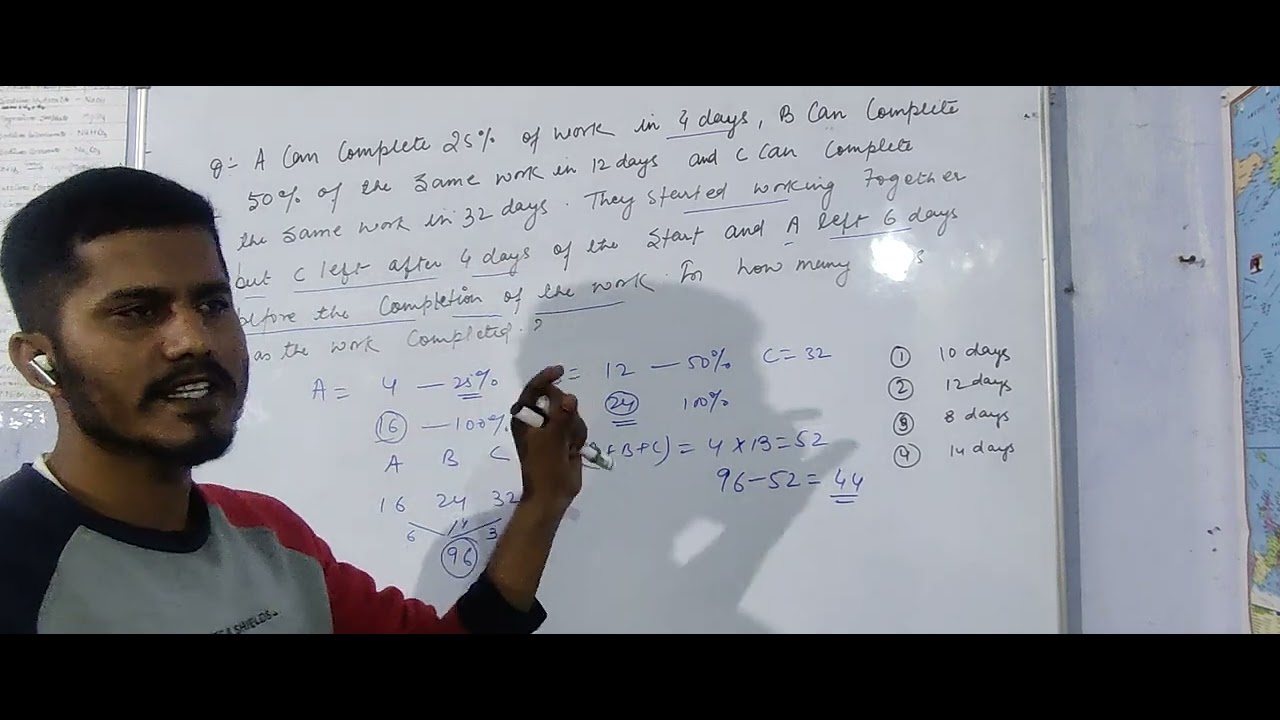 Q:- A Can Complete 25% of work in 4 days, B Can Complete
50% of the same work in 12 days and C Can Complete
the same work in 32 days. They started working Together
but C left after 4 days of the start and A left 6 days
before the Completion of the work. In how many
as the work Completed.?
A = 4 — 25% = 12 — 50% C = 32
16 — 100% 24 100%
A B C +B+C) = 4 × 13 = 52
16 24 32 96 - 52 = 44
6 4 3
96
① 10 days
② 12 days
③ 8 days
④ 14 days
SHIELDS